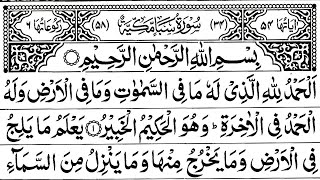 اٰیَاتُهَا ۵۴ (۳۴) سُوْرَةُ سَبَاٍ مَكِّيَّةٌ (۵۸) رُكُوْعَاتُهَا ۶
بِسْمِ اللّٰهِ الرَّحْمٰنِ الرَّحِيْمِ
اَلْحَمْدُ لِلّٰهِ الَّذِيْ لَهٗ مَا فِي السَّمٰوٰتِ وَمَا فِي الْاَرْضِ وَلَهُ
الْحَمْدُ فِي الْاٰخِرَةِ ؕ وَهُوَ الْحَكِيْمُ الْخَبِيْرُ ۝۱ يَعْلَمُ مَا يَلِجُ
فِي الْاَرْضِ وَمَا يَخْرُجُ مِنْهَا وَمَا يَنْزِلُ مِنَ السَّمَآءِ